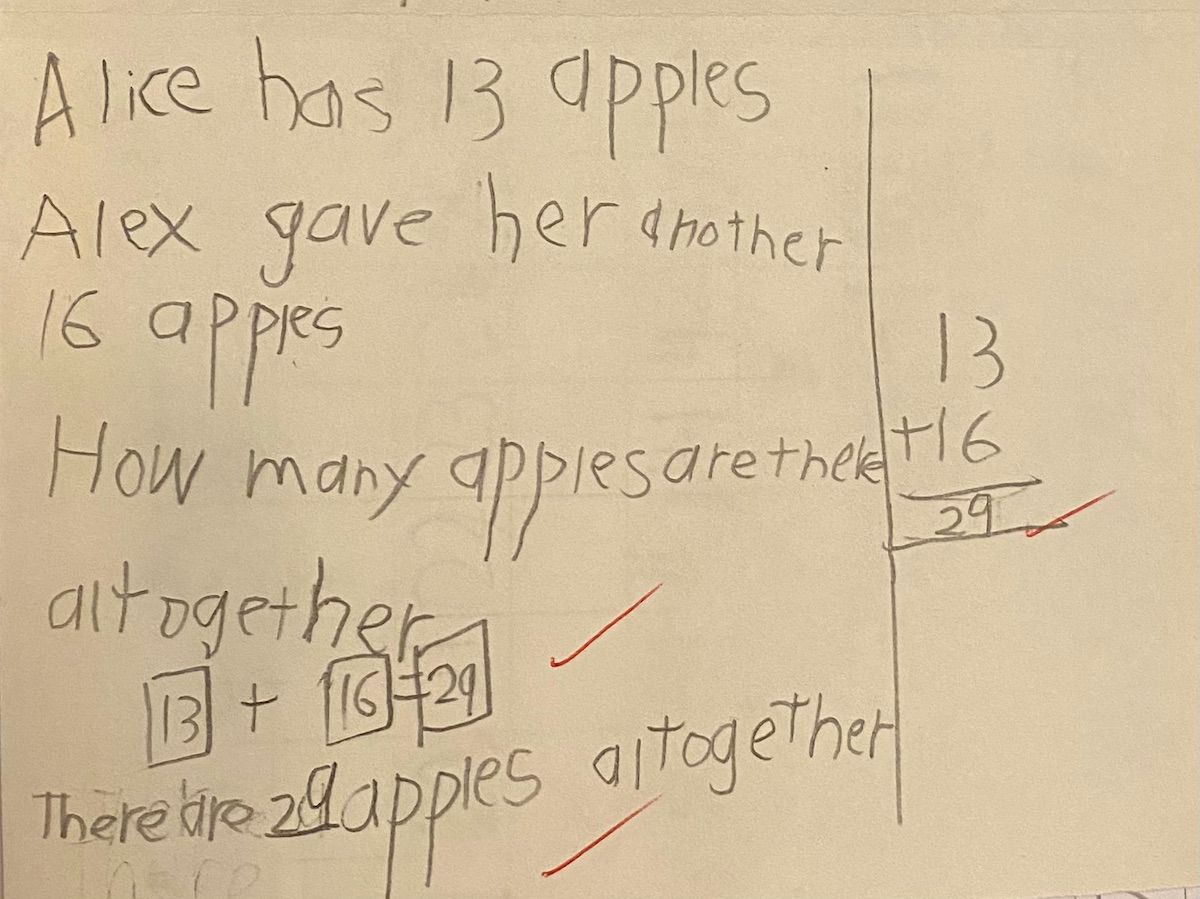 Alice has 13 apples
Alex gave her another
16 apples
How many apples are there
altogether
13 + 16 = 29
There are 29 apples altogether
13
+16
29